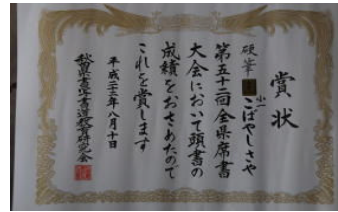 賞状
硬筆
小一
こばやしさや
第五十二回全県席書
大会において頭書の
成績をおさめたので
これを賞します
平成二十三年八月十日
秋田県書写書道教育研究会